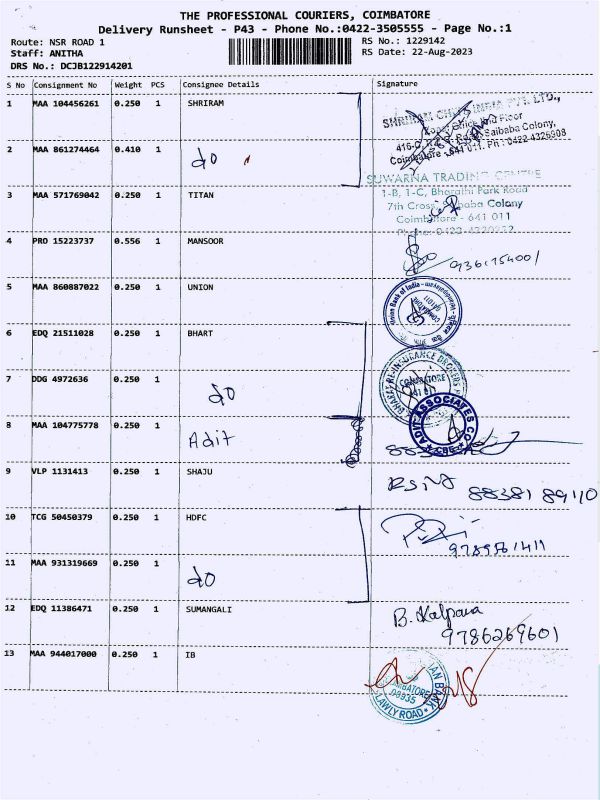 THE PROFESSIONAL COURIERS, COIMBATORE
Delivery Runsheet - P43 - Phone No.:0422-3505555 - Page No.:1
Route: NSR ROAD 1
RS No.: 1229142
Staff: ANITHA
RS Date: 22-Aug-2023
DRS No.: DCJB122914201
S No Consignment No Weight PCS Consignee Details Signature
1 MAA 104456261 0.250 1 SHRIRAM
SHRIRAM CHITS INDIA PVT. LTD.,
Floor
Saibaba Colony,
Coimbatore - 641 011. Ph : 0422-4326908
2 MAA 861274464 0.410 1 do
3 MAA 571769042 0.250 1 TITAN
SUWARNA TRADING CENTRE
1-B, 1-C, Bharathi Park Road
7th Cross, Saibaba Colony
Coimbatore - 641 011
4 PRO 15223737 0.556 1 MANSOOR
5 MAA 860887022 0.250 1 UNION
Union Bank of India
6 EDQ 21511028 0.250 1 BHART
7 DDG 4972636 0.250 1 do
COIMBATORE
8 MAA 104775778 0.250 1 Adit
ADIT ASSOCIATES CO
CBE
9 VLP 1131413 0.250 1 SHAJU
88381 89110
10 TCG 50450379 0.250 1 HDFC
11 MAA 931319669 0.250 1 do
12 EDQ 11386471 0.250 1 SUMANGALI
B. Kalpana
9786269601
13 MAA 944017000 0.250 1 IB
LAWLY ROAD